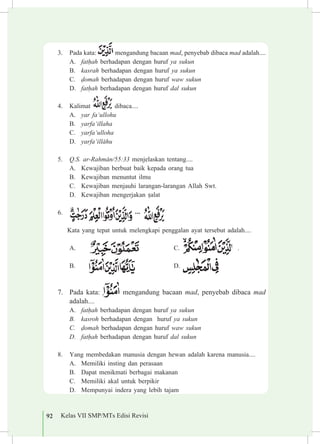 3. Pada kata: الَّذِيْنَ mengandung bacaan mad, penyebab dibaca mad adalah....
A. fatḥah berhadapan dengan huruf ya sukun
B. kasrah berhadapan dengan huruf ya sukun
C. ḍomah berhadapan dengan huruf waw sukun
D. fatḥah berhadapan dengan huruf dal sukun
4. Kalimat يَرْفَعِ اللّٰهُ dibaca....
A. yar fa'ullohu
B. yarfa'illaha
C. yarfa'ulloha
D. yarfa'illāhu
5. Q.S. ar-Rahmān/55:33 menjelaskan tentang....
A. Kewajiban berbuat baik kepada orang tua
B. Kewajiban menuntut ilmu
C. Kewajiban menjauhi larangan-larangan Allah Swt.
D. Kewajiban mengerjakan ṣalat
6. يَرْفَعِ اللّٰهُ ... وَالَّذِيْنَ اُوْتُوا الْعِلْمَ دَرَجٰتٍ
Kata yang tepat untuk melengkapi penggalan ayat tersebut adalah....
A. تَعْمَلُوْنَ خَبِيْرٌ C. الَّذِيْنَ اٰمَنُوْا مِنْكُمْ .
B. يٰٓاَيُّهَا الَّذِيْنَ اٰمَنُوْٓا D. فِى الْمَجٰلِسِ
7. Pada kata: اٰمَنُوْٓا mengandung bacaan mad, penyebab dibaca mad
adalah....
A. fatḥah berhadapan dengan huruf ya sukun
B. kasroh berhadapan dengan huruf ya sukun
C. ḍomah berhadapan dengan huruf waw sukun
D. fatḥah berhadapan dengan huruf dal sukun
8. Yang membedakan manusia dengan hewan adalah karena manusia....
A. Memiliki insting dan perasaan
B. Dapat menikmati berbagai makanan
C. Memiliki akal untuk berpikir
D. Mempunyai indera yang lebih tajam
92 Kelas VII SMP/MTs Edisi Revisi